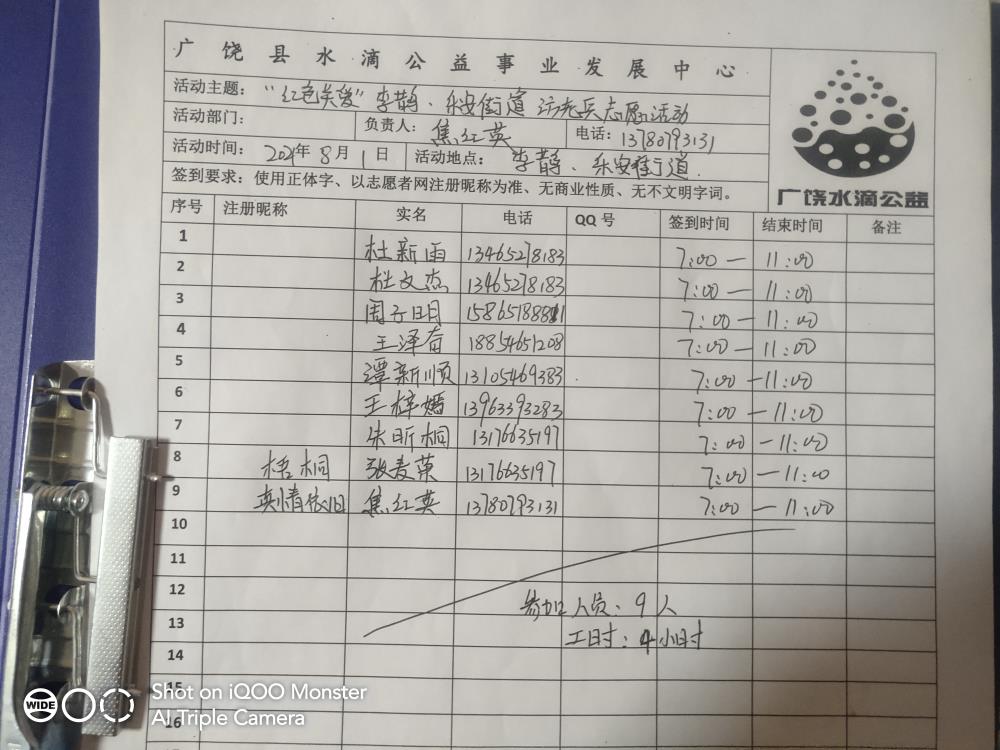 广饶县水滴公益事业发展中心
活动主题：“红色关爱”李鹊、乐安街道访老兵志愿活动
活动部门： 负责人：焦红英 电话：13780793131
活动时间：2021年8月1日 活动地点：李鹊、乐安街道.
签到要求：使用正体字、以志愿者网注册昵称为准、无商业性质、无不文明字词。
广饶水滴公益
序号 注册昵称 实名 电话 QQ号 签到时间 结束时间 备注
1 杜新雨 13465278183 7:00 — 11:00
2 杜文杰 13465278183 7:00 — 11:00
3 周子明 7:00 — 11:00
4 王泽 18854651208 7:00 — 11:00
5 谭新顺 13105469383 7:00 — 11:00
6 王梓嫣 13963393283 7:00 — 11:00
7 朱昕桐 13176635197 7:00 — 11:00
8 梧桐 张麦荣 13176635197 7:00 — 11:00
9 真情依旧 焦红英 13780793131 7:00 — 11:00
10
11
12 参加人员：9人
13 工日寸：4小时
14
15
16
WIDE
Shot on iQOO Monster
AI Triple Camera